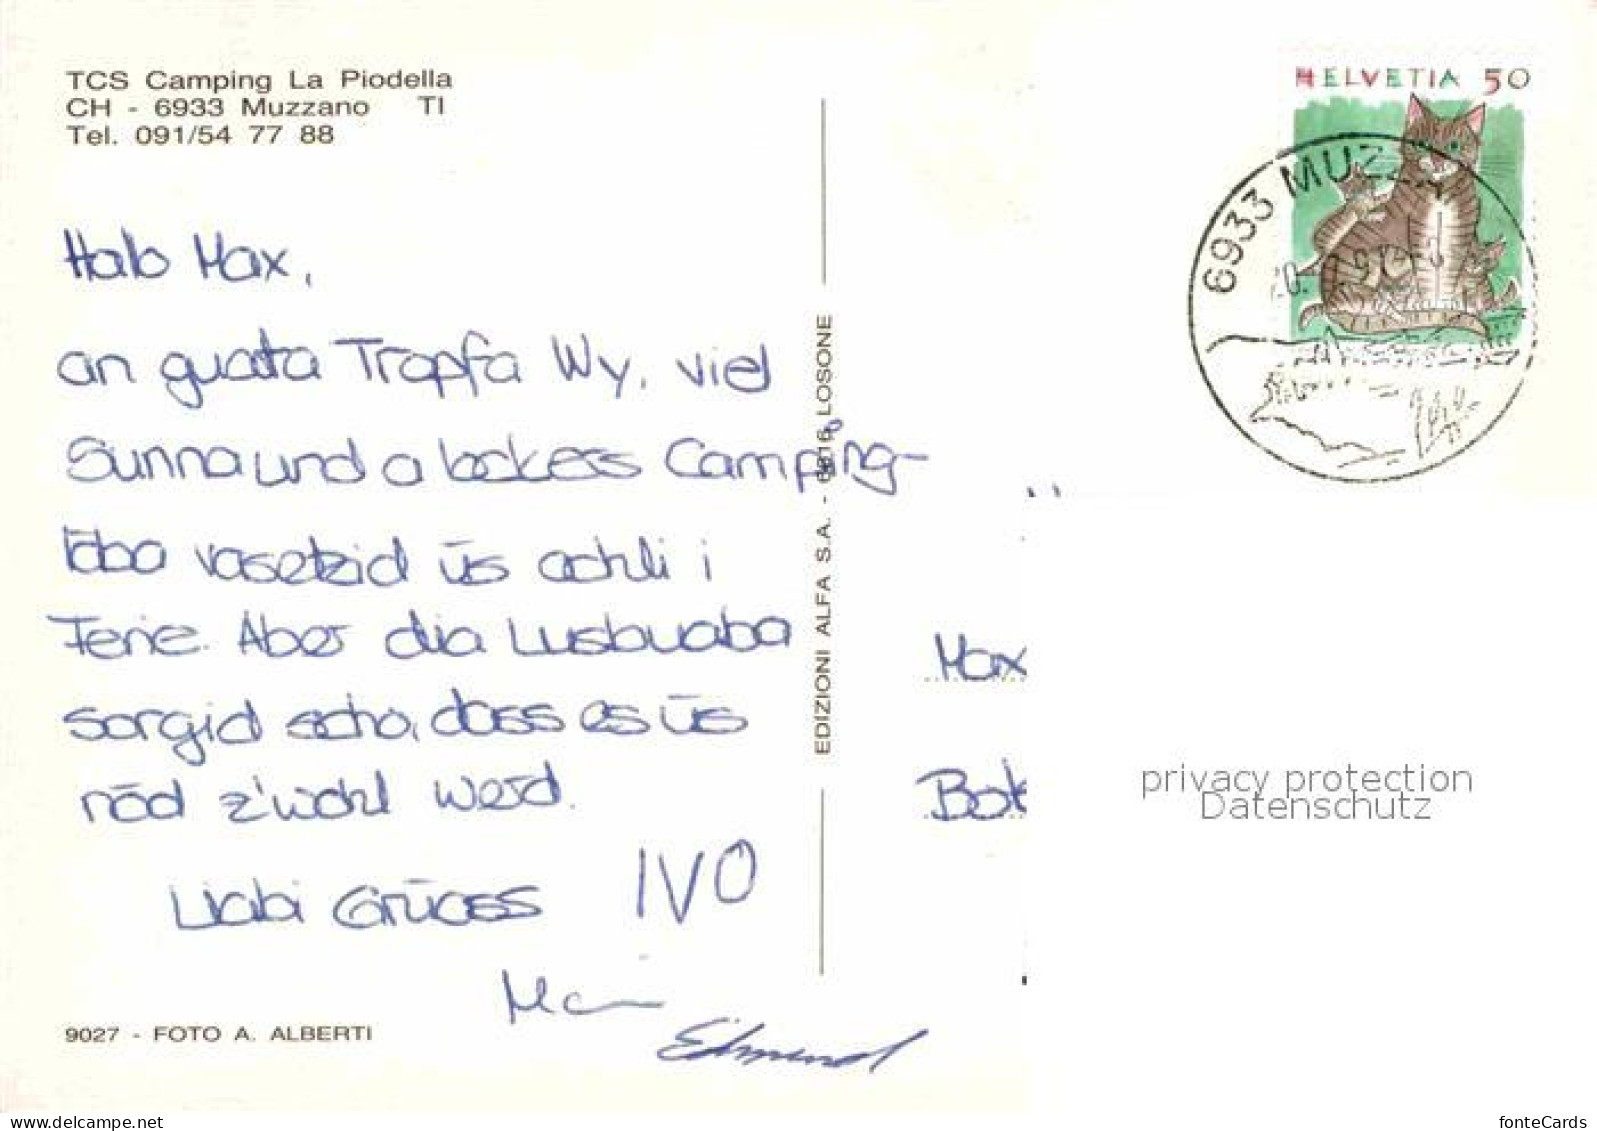 TCS Camping La Piodella
CH - 6933 Muzzano TI
Tel. 091/54 77 88
HELVETIA 50
6933 MUZZA
Halo Max,
an guata Tropfa Wy, viel
Sunna und a lockers Camping-
läba vasetzid üs achli i
Ferie. Aber dia Lusbuaba
sorgid scho, dass es üs
nöd z'wohl werd.
Liabi Grüass IVO
Edmund
9027 - FOTO A. ALBERTI
EDIZIONI ALFA S.A. - 6616 LOSONE
Max
Bot
privacy protection
Datenschutz
www.delcampe.net
fonteCards